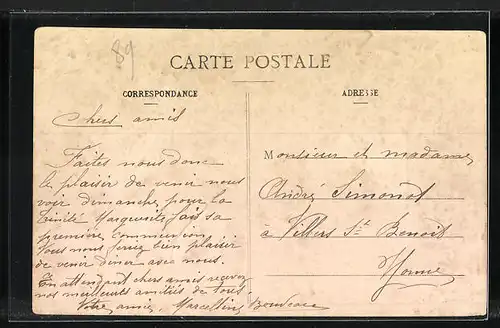 89
CARTE POSTALE
CORRESPONDANCE
ADRESSE
Chers amis
Faites nous donc
le plaisir de venir nous
voir dimanche, pour la
trinité Marguerite fait sa
première communion
vous nous feriez bien plaisir
de venir diner avec nous.
En attendant chers amis recevez
nos meilleures amitiés de tous.
Votre amie, Marcelline
Monsieur et madame,
André Simonot
à Villers St Benoit
Yonne